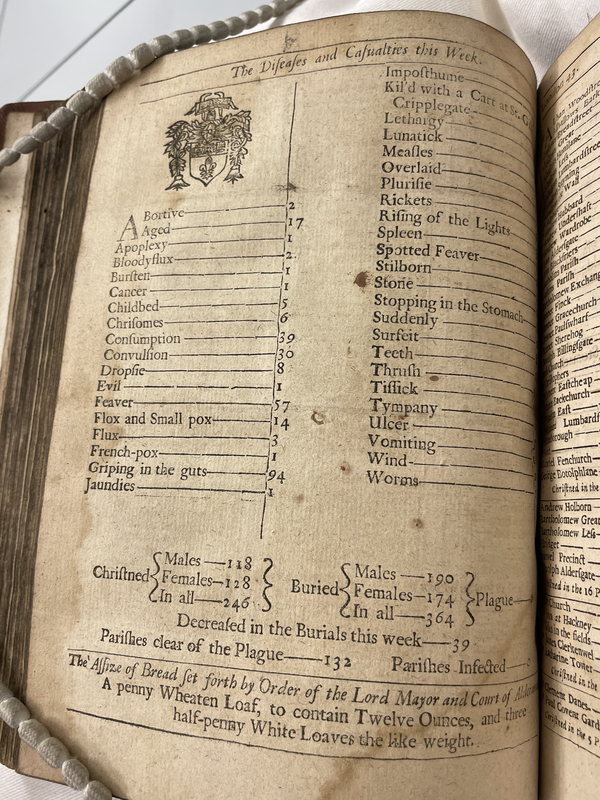 The Diſeaſes and Caſualties this Week.
Abortive 2
Aged 17
Apoplexy 1
Bloodyflux 2
Burſten 1
Cancer 1
Childbed 5
Chriſomes 6
Conſumption 39
Convulſion 30
Dropſie 8
Evil 1
Feaver 57
Flox and Small pox 14
Flux 3
French-pox 1
Griping in the guts 94
Jaundies 1
Impoſthume
Kil'd with a Cart at St. G
Cripplegate
Lethargy
Lunatick
Meaſles
Overlaid
Pluriſie
Rickets
Riſing of the Lights
Spleen
Spotted Feaver
Stilborn
Stone
Stopping in the Stomach
Suddenly
Surfeit
Teeth
Thruſh
Tiſſick
Tympany
Ulcer
Vomiting
Wind
Worms
Chriſtned { Males — 118
Females — 128
In all — 246 }
Buried { Males — 190
Females — 174
In all — 364 } Plague
Decreaſed in the Burials this week — 39
Pariſhes clear of the Plague — 132 Pariſhes Infected
The Aſſize of Bread ſet forth by Order of the Lord Mayor and Court of
A penny Wheaten Loaf, to contain Twelve Ounces, and three
half-penny White Loaves the like weight.
43.
Breadſtreet
Great
Lumbardſtree
Wall
Hubbard
Underſhaft
Wardrobe
Pariſh
Exchang
Finck
Gracechurch
Paulſwharf
Sherehog
Billingſgate
Eaſtcheap
Eaſt
Lumbardſ
Fenchurch
Botolphlane
Chriſtned in the
Andrew Holborn
Bartholomew Great
Bartholomew Leſs
Bridget
Precinct
Alderſgate
Chriſtned in the 16 P
Church
at Hackney
in the fields
James Clerkenwel
Katharine Tower
Chriſtned in the
Clement Danes
Paul Covent Gard
Chriſtned in the 5 P